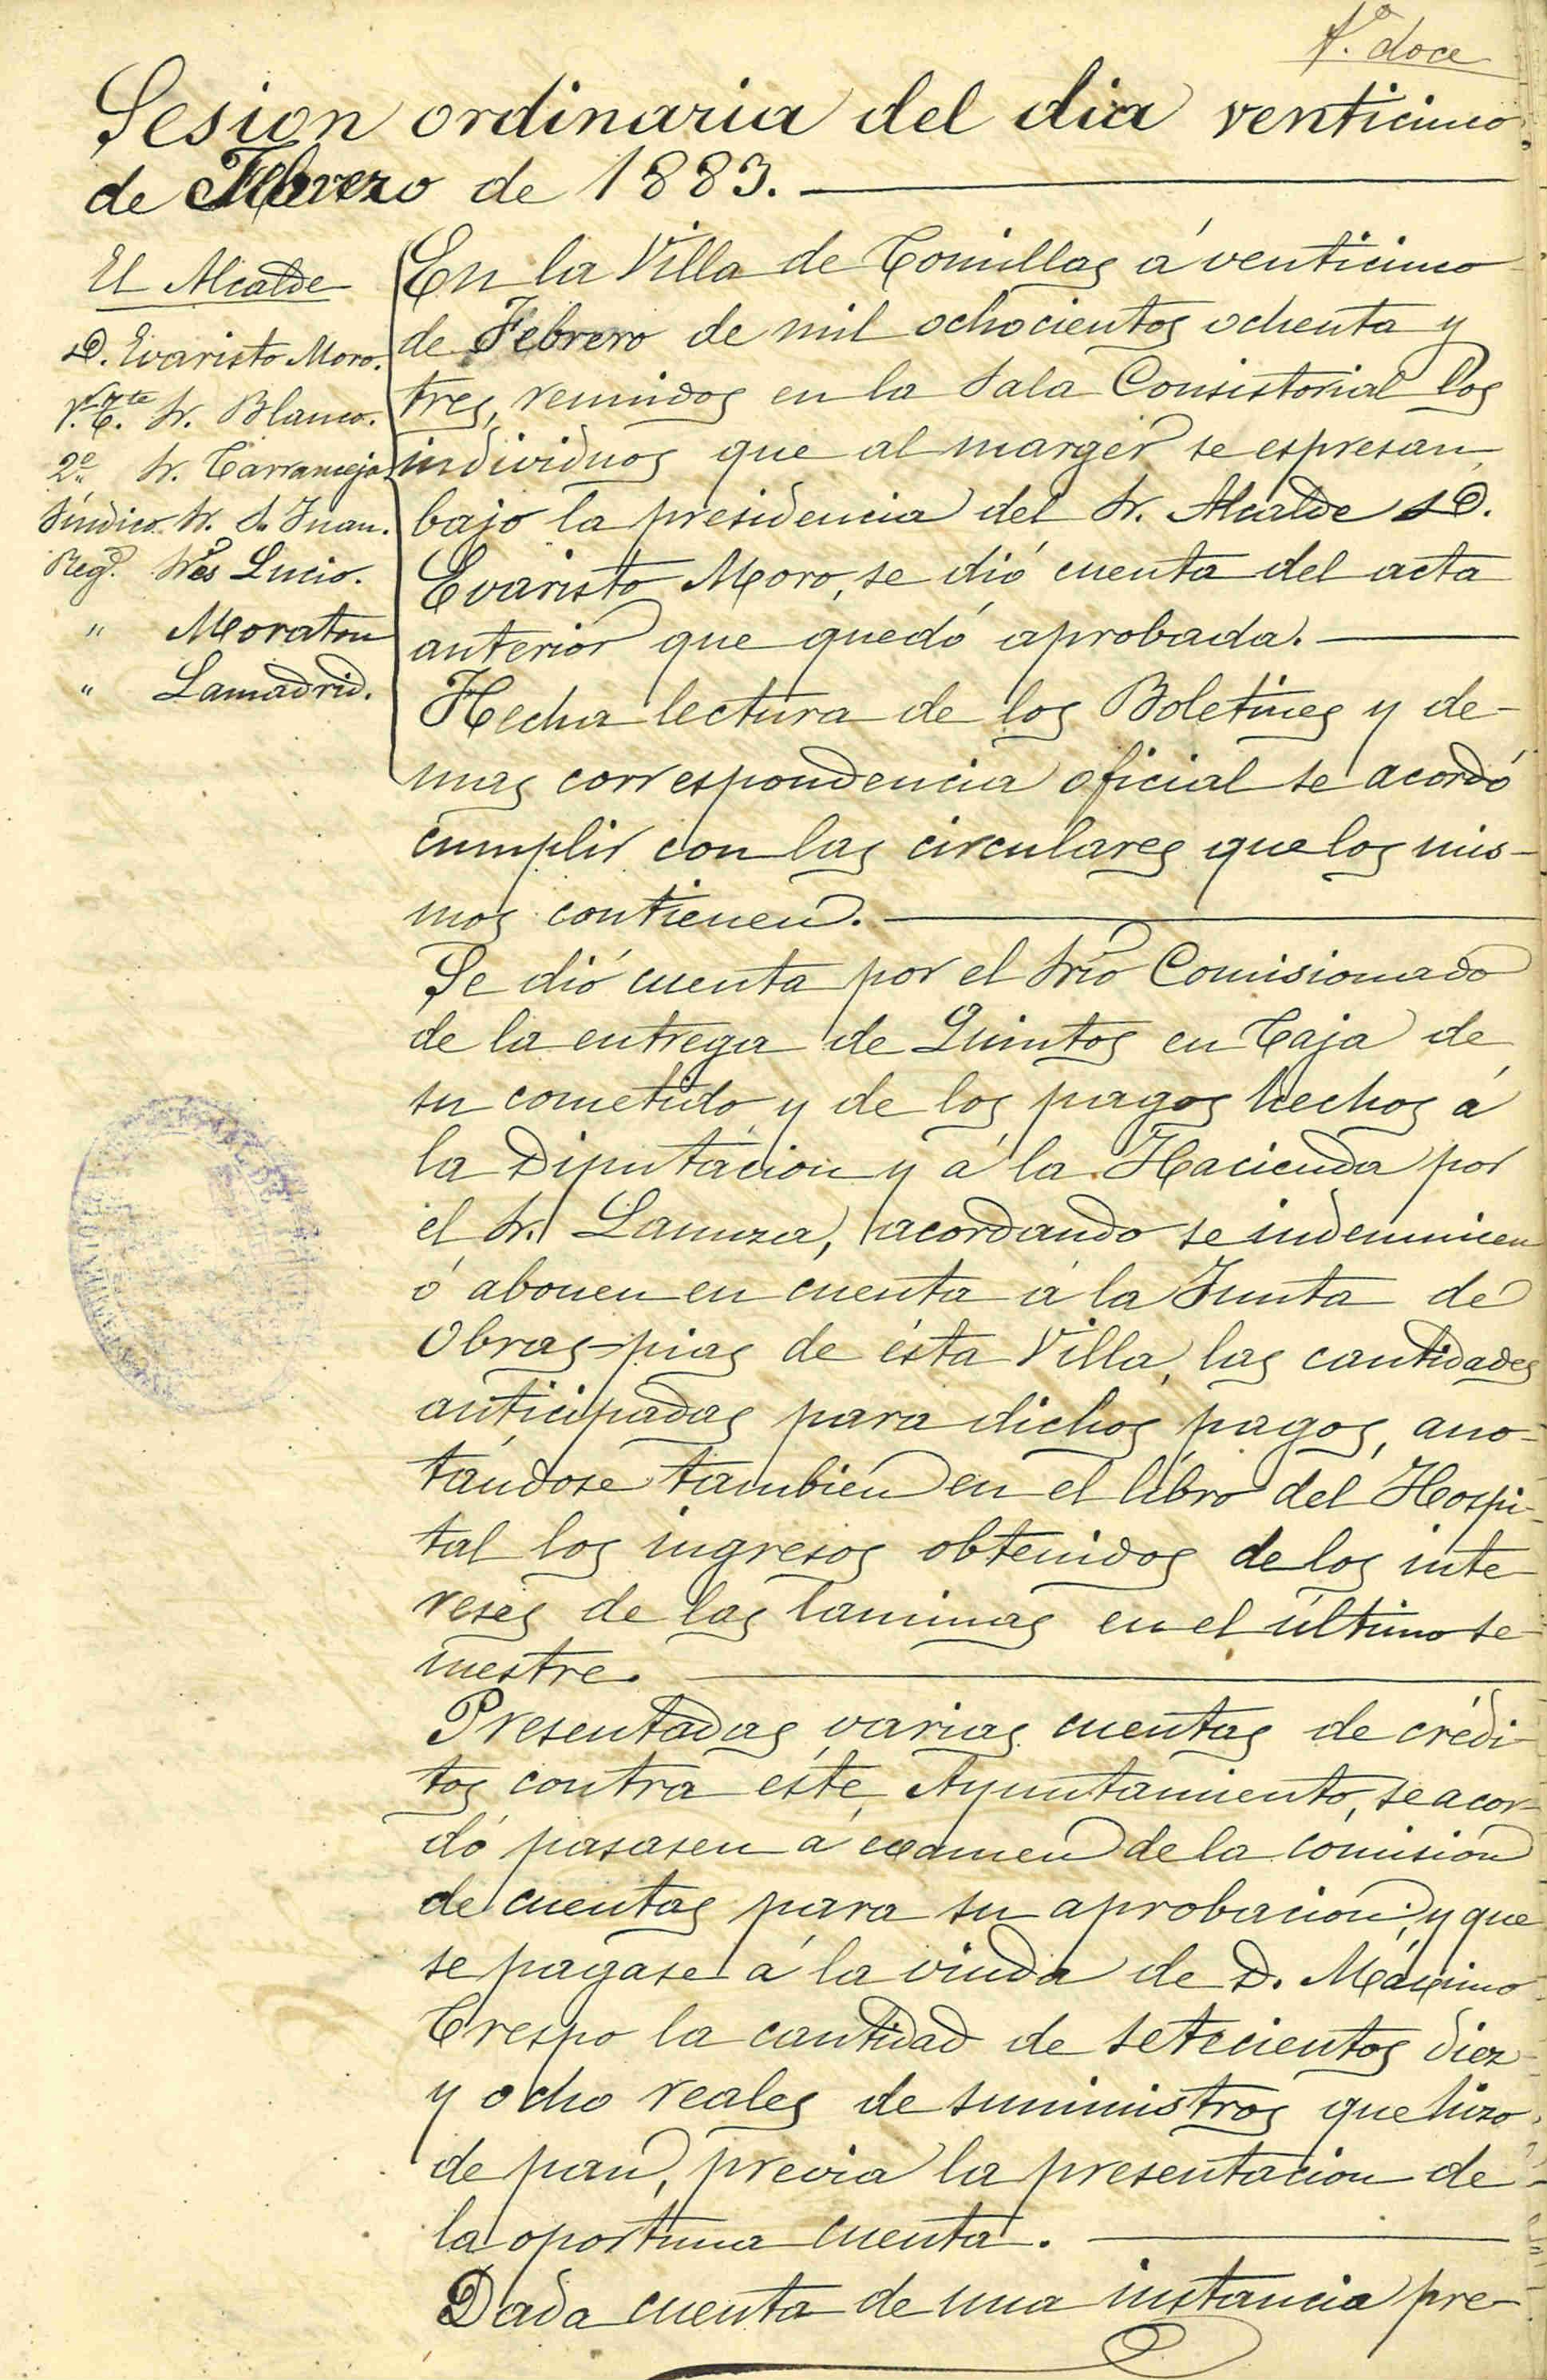 fº. doce
Sesion ordinaria del dia venticinco
de Febrero de 1883.
El Alcalde
D. Evaristo Moro.
1.er Tte. Sr. Blanco.
2º Sr. Tarramejo
Síndico Sr. S. Juan.
Regs. Sres Lucio.
" Moraton
" Lamadrid.
En la Villa de Comillas á venticinco
de Febrero de mil ochocientos ochenta y
tres, reunidos en la Sala Consistorial los
individuos que al margen se espresan
bajo la presidencia del Sr. Alcalde D.
Evaristo Moro, se dió cuenta del acta
anterior que quedó aprobada.
Hecha lectura de los Boletines y de-
mas correspondencia oficial se acordó
cumplir con las circulares que los mis-
mos contienen.
Se dió cuenta por el Srio Comisionado
de la entrega de Quintos en Caja de
su cometido y de los pagos hechos á
la Diputacion y á la Hacienda por
el Sr. Lanuza, acordando se indemnicen
ó abonen en cuenta á la Junta de
Obras-pias de ésta Villa, las cantidades
anticipadas para dichos pagos, ano-
tándose tambien en el libro del Hospi-
tal los ingresos obtenidos de los inte-
reses de las laminas en el último se-
mestre.
Presentadas varias cuentas de crédi-
tos contra éste Ayuntamiento, se acor-
dó pasasen á examen de la comisión
de cuentas para su aprobacion; y que
se pagase á la viuda de D. Máximo
Crespo la cantidad de setecientos diez
y ocho reales de suministros que hizo
de pan, previa la presentacion de
la oportuna cuenta.
Dada cuenta de una instancia pre-